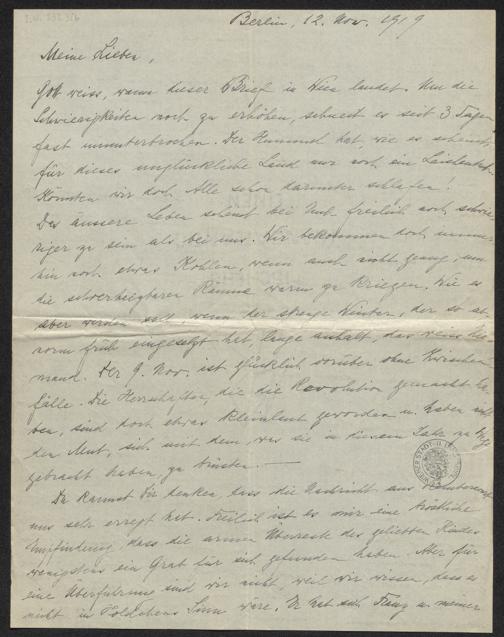 Berlin, 12. Nov. 1919
Meine Lieben,
Gott weiss, wann dieser Brief in Wien landet. Um die
Schwierigkeiten noch zu erhöhen, schneit es seit 3 Tagen
fast ununterbrochen. Der Himmel hat, wie es scheint,
für dieses unglückliche Land nur noch ein Leichentuch.
Könnten wir doch Alle schon darunter schlafen!
Das äussere Leben scheint bei Euch freilich noch schwie-
riger zu sein als bei uns. Wir bekommen doch immer-
hin noch etwas Kohlen, wenn auch nicht genug, um
die selbst Räume warm zu kriegen. Wie es
aber werden soll, wenn der strenge Winter, der so ab-
norm früh eingesetzt hat, lange anhält, das weiss Nie-
mand. Der 9. Nov. ist glücklich vorüber ohne Zwischen-
fälle. Die Herrschaften, die die Revolution gemacht ha-
ben, sind doch etwas kleinlaut geworden u. haben nicht
den Mut, sich mit dem, was sie in diesem Jahr zu Wege
gebracht haben, zu brüsten. —
Du kannst Dir denken, dass die Nachricht aus
uns sehr erregt hat. Freilich ist es mir eine tröstliche
Empfindung, dass die armen Überreste des geliebten Kindes
wenigstens ein Grab für sich gefunden haben. Aber für
eine Überführung sind wir nicht, weil wir wissen, dass es
nicht in Poldchens Sinn wäre. Er hat sich Franz u. meiner